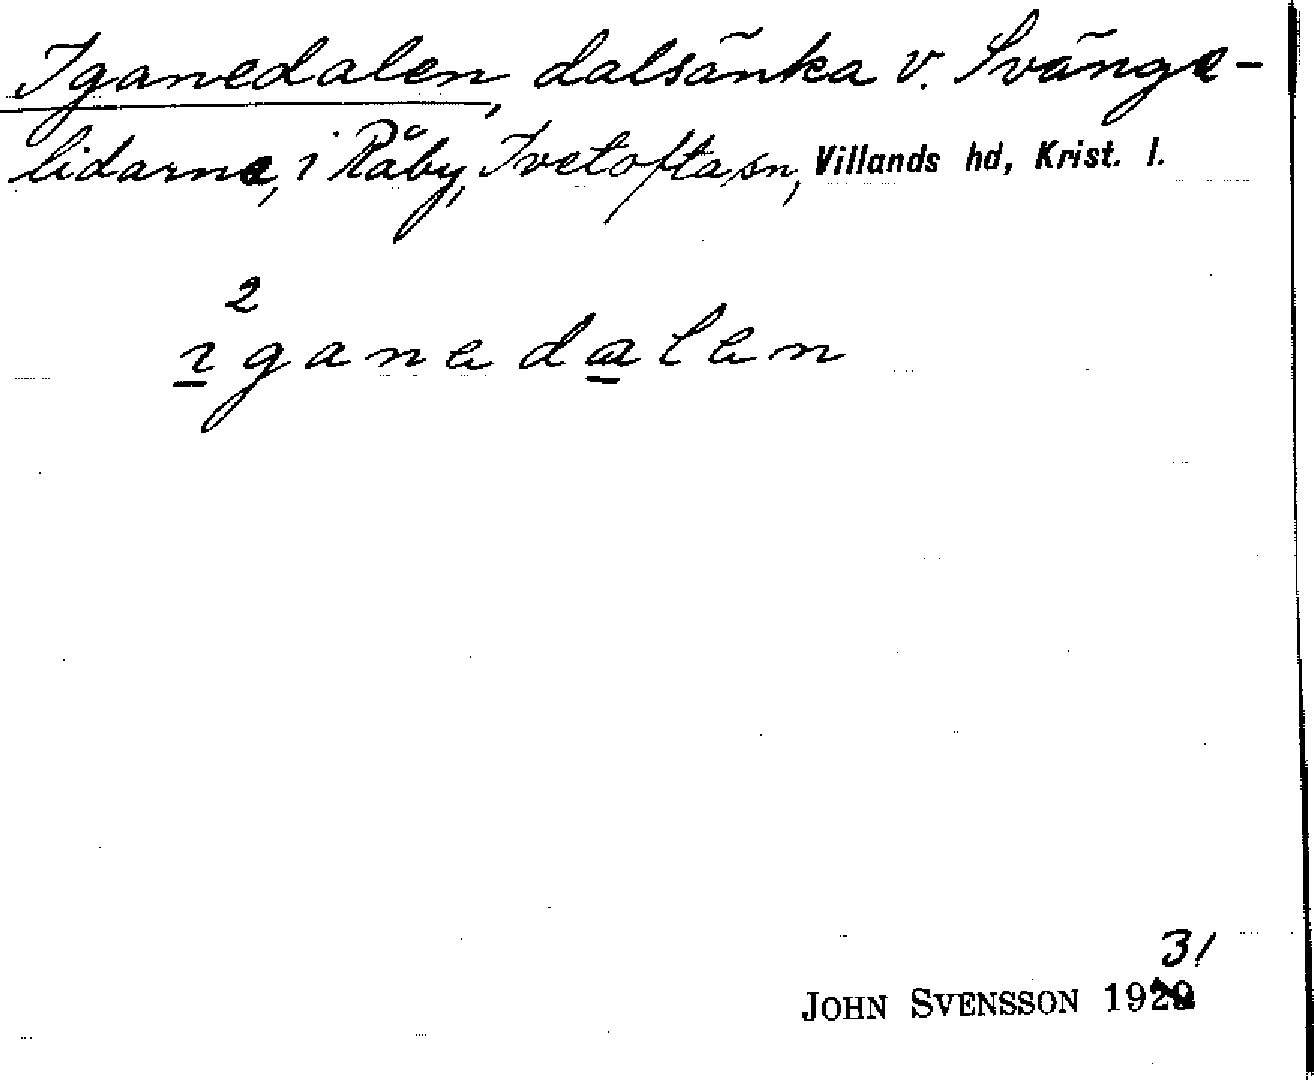 Iganedalen, dalsänka v. Svänge-
lidarne, i Råby, Ivetofta sn, Villands hd, Krist. l.
2
ı̱ganeda̱len
31
JOHN SVENSSON 1929